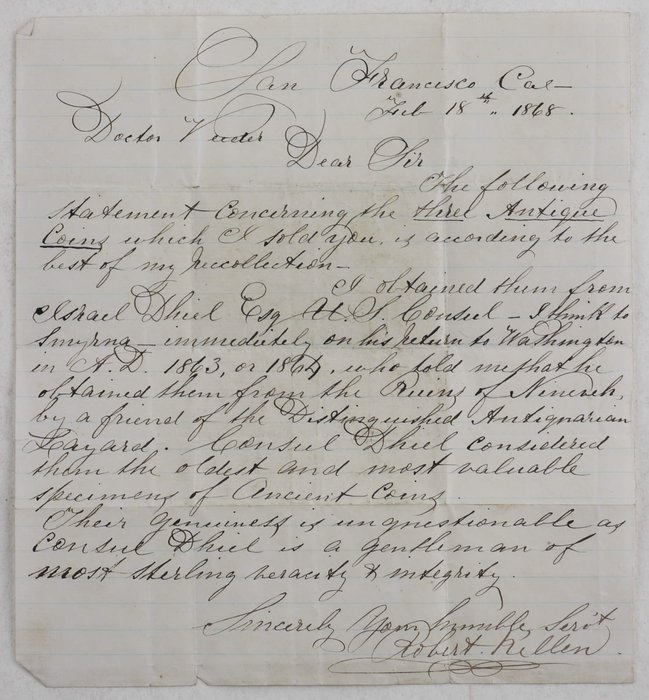 San Francisco Cal—
Feb 18th, 1868.
Doctor Veeder
Dear Sir
The following
statement concerning the three Antique
Coins which I sold you, is according to the
best of my reccollection—
I obtained them from
Israel Dhiel Esq U.S. Consul – I think to
Smyrna – immediately on his return to Washington
in A.D. 1863, or 1864, who told me that he
obtained them from the Ruins of Nineveh,
by a friend of the Distinguished Antiquarian
Layard. Consul Dhiel considered
them the oldest and most valuable
specimens of Ancient Coins.
Their genuiness is unquestionable as
Consul Dhiel is a gentleman of
most sterling veracity & integrity.
Sincerely Your humble Serv't
Robert